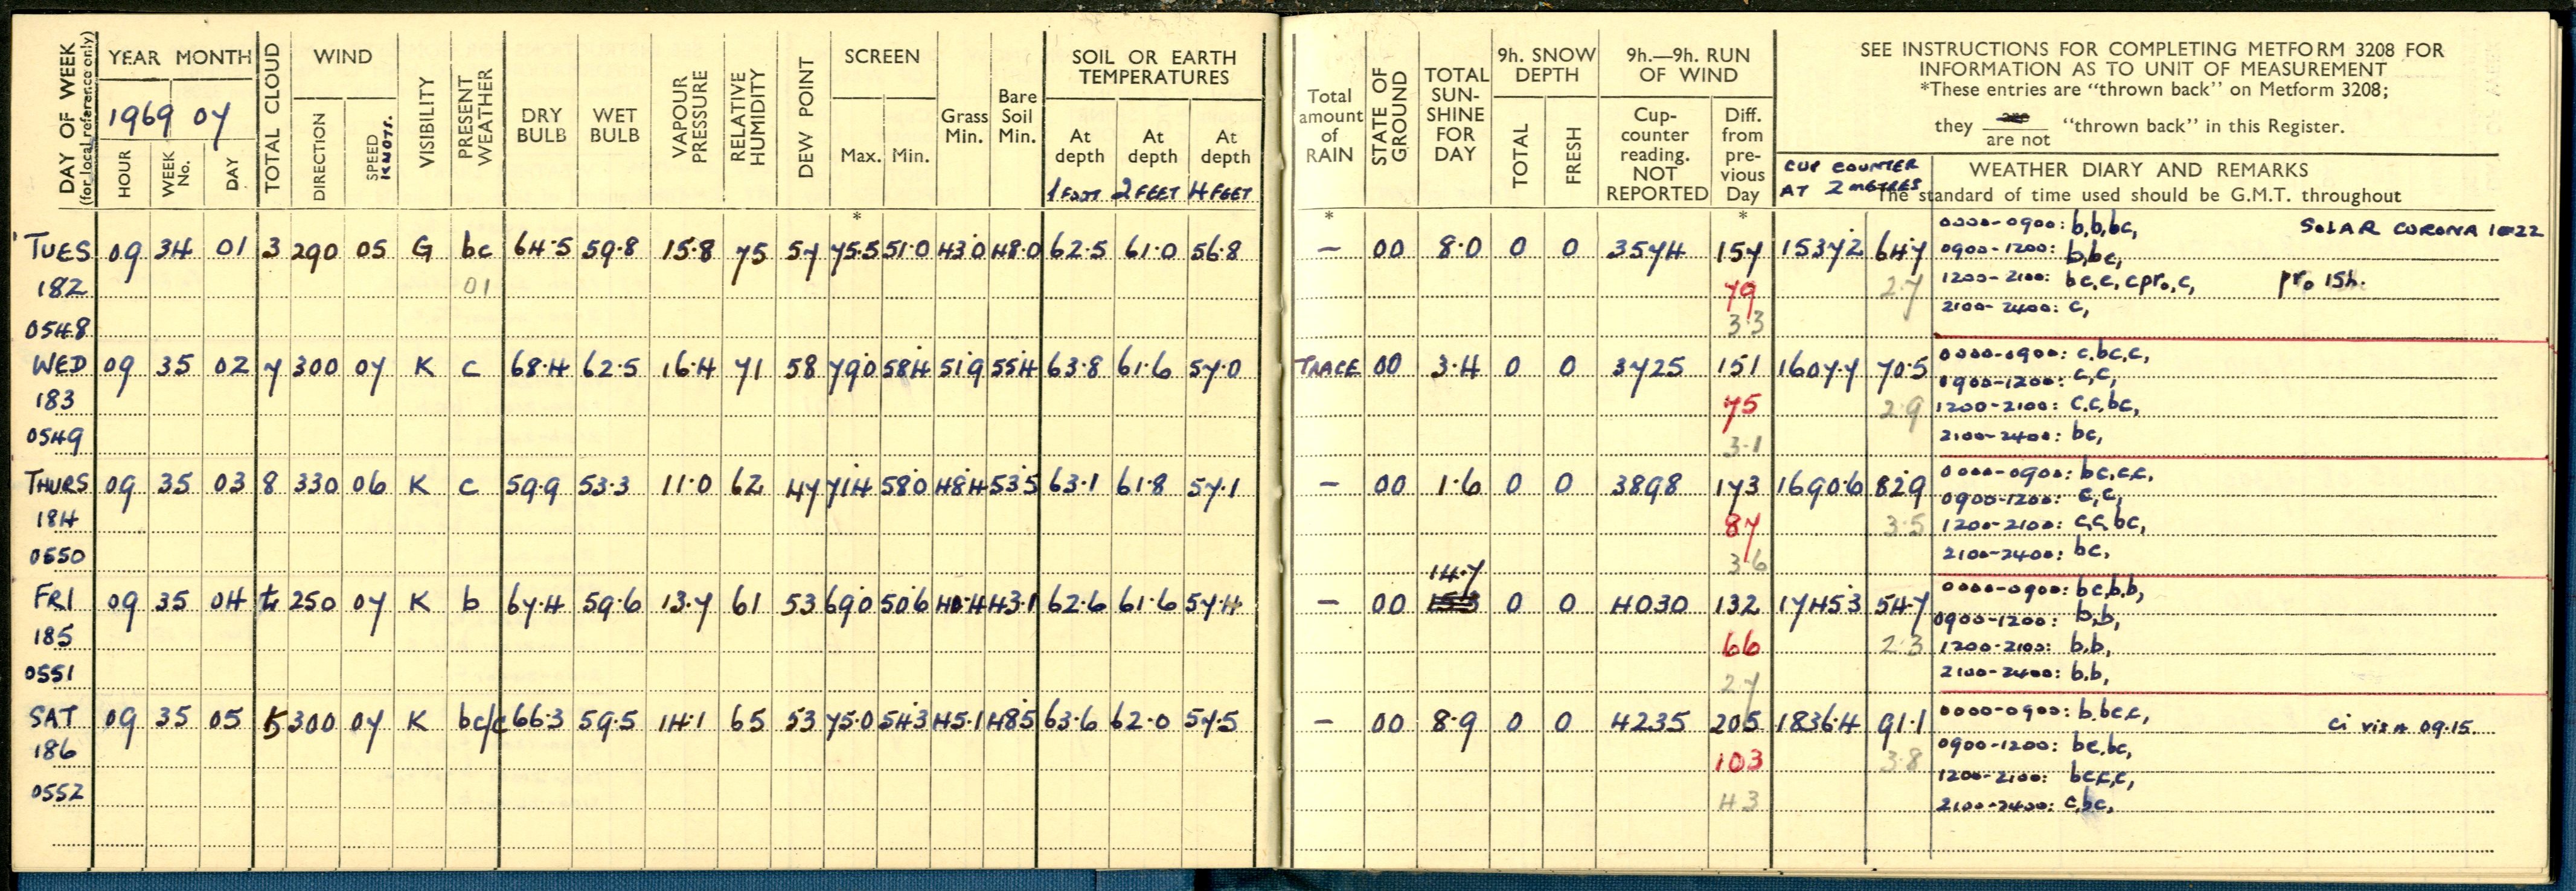 DAY OF WEEK (for local reference only)
YEAR MONTH
1969 07
HOUR
WEEK No.
DAY
TOTAL CLOUD
WIND
DIRECTION
SPEED KNOTS.
VISIBILITY
PRESENT WEATHER
DRY BULB
WET BULB
VAPOUR PRESSURE
RELATIVE HUMIDITY
DEW POINT
SCREEN
Max. Min.
Grass Min.
Bare Soil Min.
SOIL OR EARTH TEMPERATURES
At depth At depth At depth
1 FOOT 2 FEET 4 FEET
Total amount of RAIN
STATE OF GROUND
TOTAL SUN-SHINE FOR DAY
9h. SNOW DEPTH
TOTAL
FRESH
9h.—9h. RUN OF WIND
Cup-counter reading. NOT REPORTED
Diff. from pre-vious Day
SEE INSTRUCTIONS FOR COMPLETING METFORM 3208 FOR
INFORMATION AS TO UNIT OF MEASUREMENT
*These entries are "thrown back" on Metform 3208;
they are / are not "thrown back" in this Register.
CUP COUNTER AT 2 METRES
WEATHER DIARY AND REMARKS
The standard of time used should be G.M.T. throughout
* * *
TUES 09 34 01 3 290 05 G bc 64.5 59.8 15.8 75 57 75.5 51.0 43.0 48.0 62.5 61.0 56.8 — 00 8.0 0 0 3574 157 15372 64.7
0000-0900: b,b,bc, SOLAR CORONA 1022
0900-1200: b,bc,
182 01 79 2.7
1200-2100: bc,c,cpr₀,c, pr₀ 15h.
0548 3.3
2100-2400: c,
WED 09 35 02 7 300 07 K c 68.4 62.5 16.4 71 58 79.0 58.4 51.9 55.4 63.8 61.6 57.0 TRACE 00 3.4 0 0 3725 151 1607.7 70.5
0000-0900: c,bc,c,
0900-1200: c,c,
183 75 2.9
1200-2100: c,c,bc,
0549 3.1
2100-2400: bc,
THURS 09 35 03 8 330 06 K c 59.9 53.3 11.0 62 47 71.4 58.0 48.4 53.5 63.1 61.8 57.1 — 00 1.6 0 0 3898 173 1690.6 82.9
0000-0900: bc,c,c,
0900-1200: c,c,
184 87 3.5
1200-2100: c,c,bc,
0550 3.6
2100-2400: bc,
14.7
FRI 09 35 04 250 07 K b 67.4 59.6 13.7 61 53 69.0 50.6 40.4 43.1 62.6 61.6 57.4 — 00 0 0 4030 132 1745.3 54.7
0000-0900: bc,b,b,
0900-1200: b,b,
185 66 2.3
1200-2100: b,b,
0551 2.7
2100-2400: b,b,
SAT 09 35 05 5 300 07 K bc/c 66.3 59.5 14.1 65 53 75.0 54.3 45.1 48.5 63.6 62.0 57.5 — 00 8.9 0 0 4235 205 1836.4 91.1
0000-0900: b,bc,c, ci vis n 09.15
0900-1200: bc,bc,
186 103 3.8
1200-2100: bc,c,c,
0552 4.3
2100-2400: c,bc,